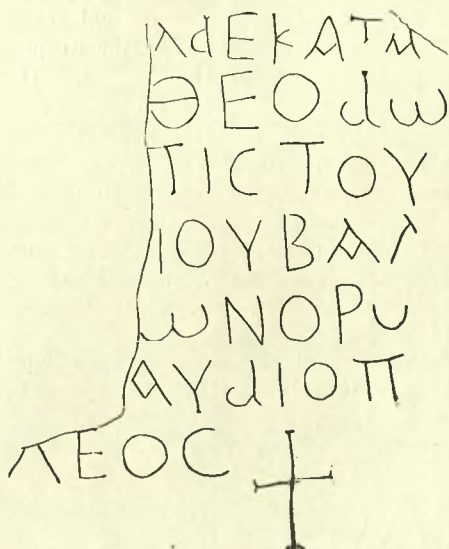 ΛΔΕΚΑΤΜ
ΘΕΟΔω
ΠΙϹΤΟΥ
ΙΟΥΒΑΛ
ωΝΟΡυ
ΑΥΔΙΟΠ
ΛΕΟϹ ☩